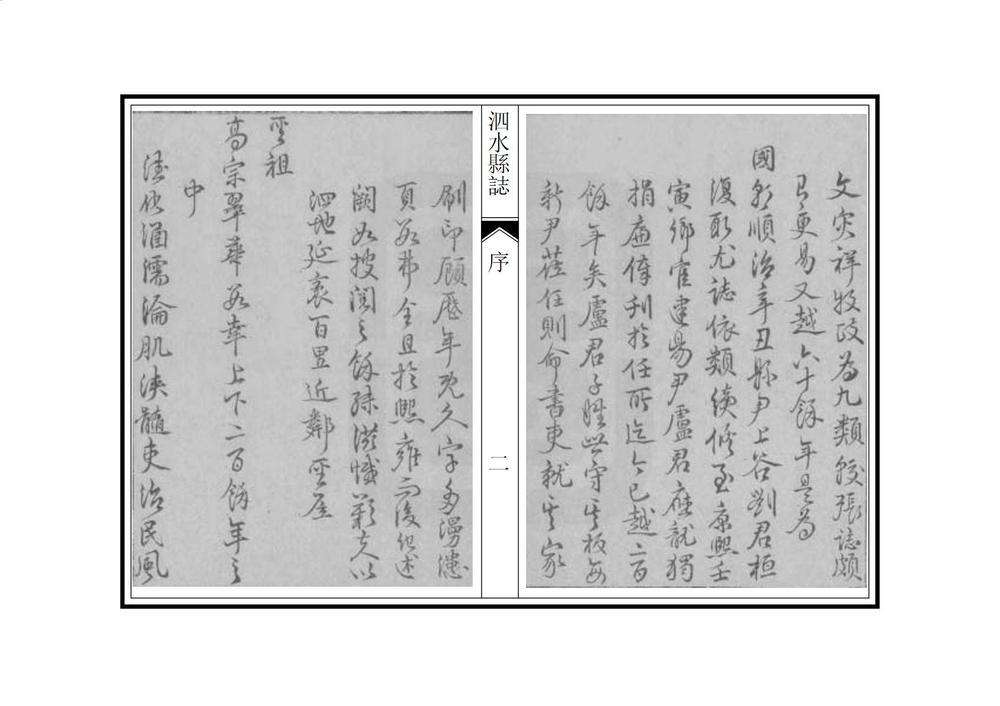 文灾祥牧政為九類較張誌頗
有更易又越六十餘年是為
國朝順治辛丑縣尹上谷劉君桓
復取尤誌依類續修至康熙壬
寅鄉宦建易尹盧君應龍獨
捐廉俸刊於任所迄今已越二百
餘年矣盧君子姓世守其板每
新尹蒞任則命書吏就其家
泗水縣誌
序
二
刷印顧歷年既久字多漫漶
頁數弗全且於熙雍而後紀述
闕如披閱之餘殊滋憾歎夫以
泗地延袤百里近鄰聖居
聖祖
高宗翠華數幸上下二百餘年之
中
德化涵濡淪肌浹髓吏治民風